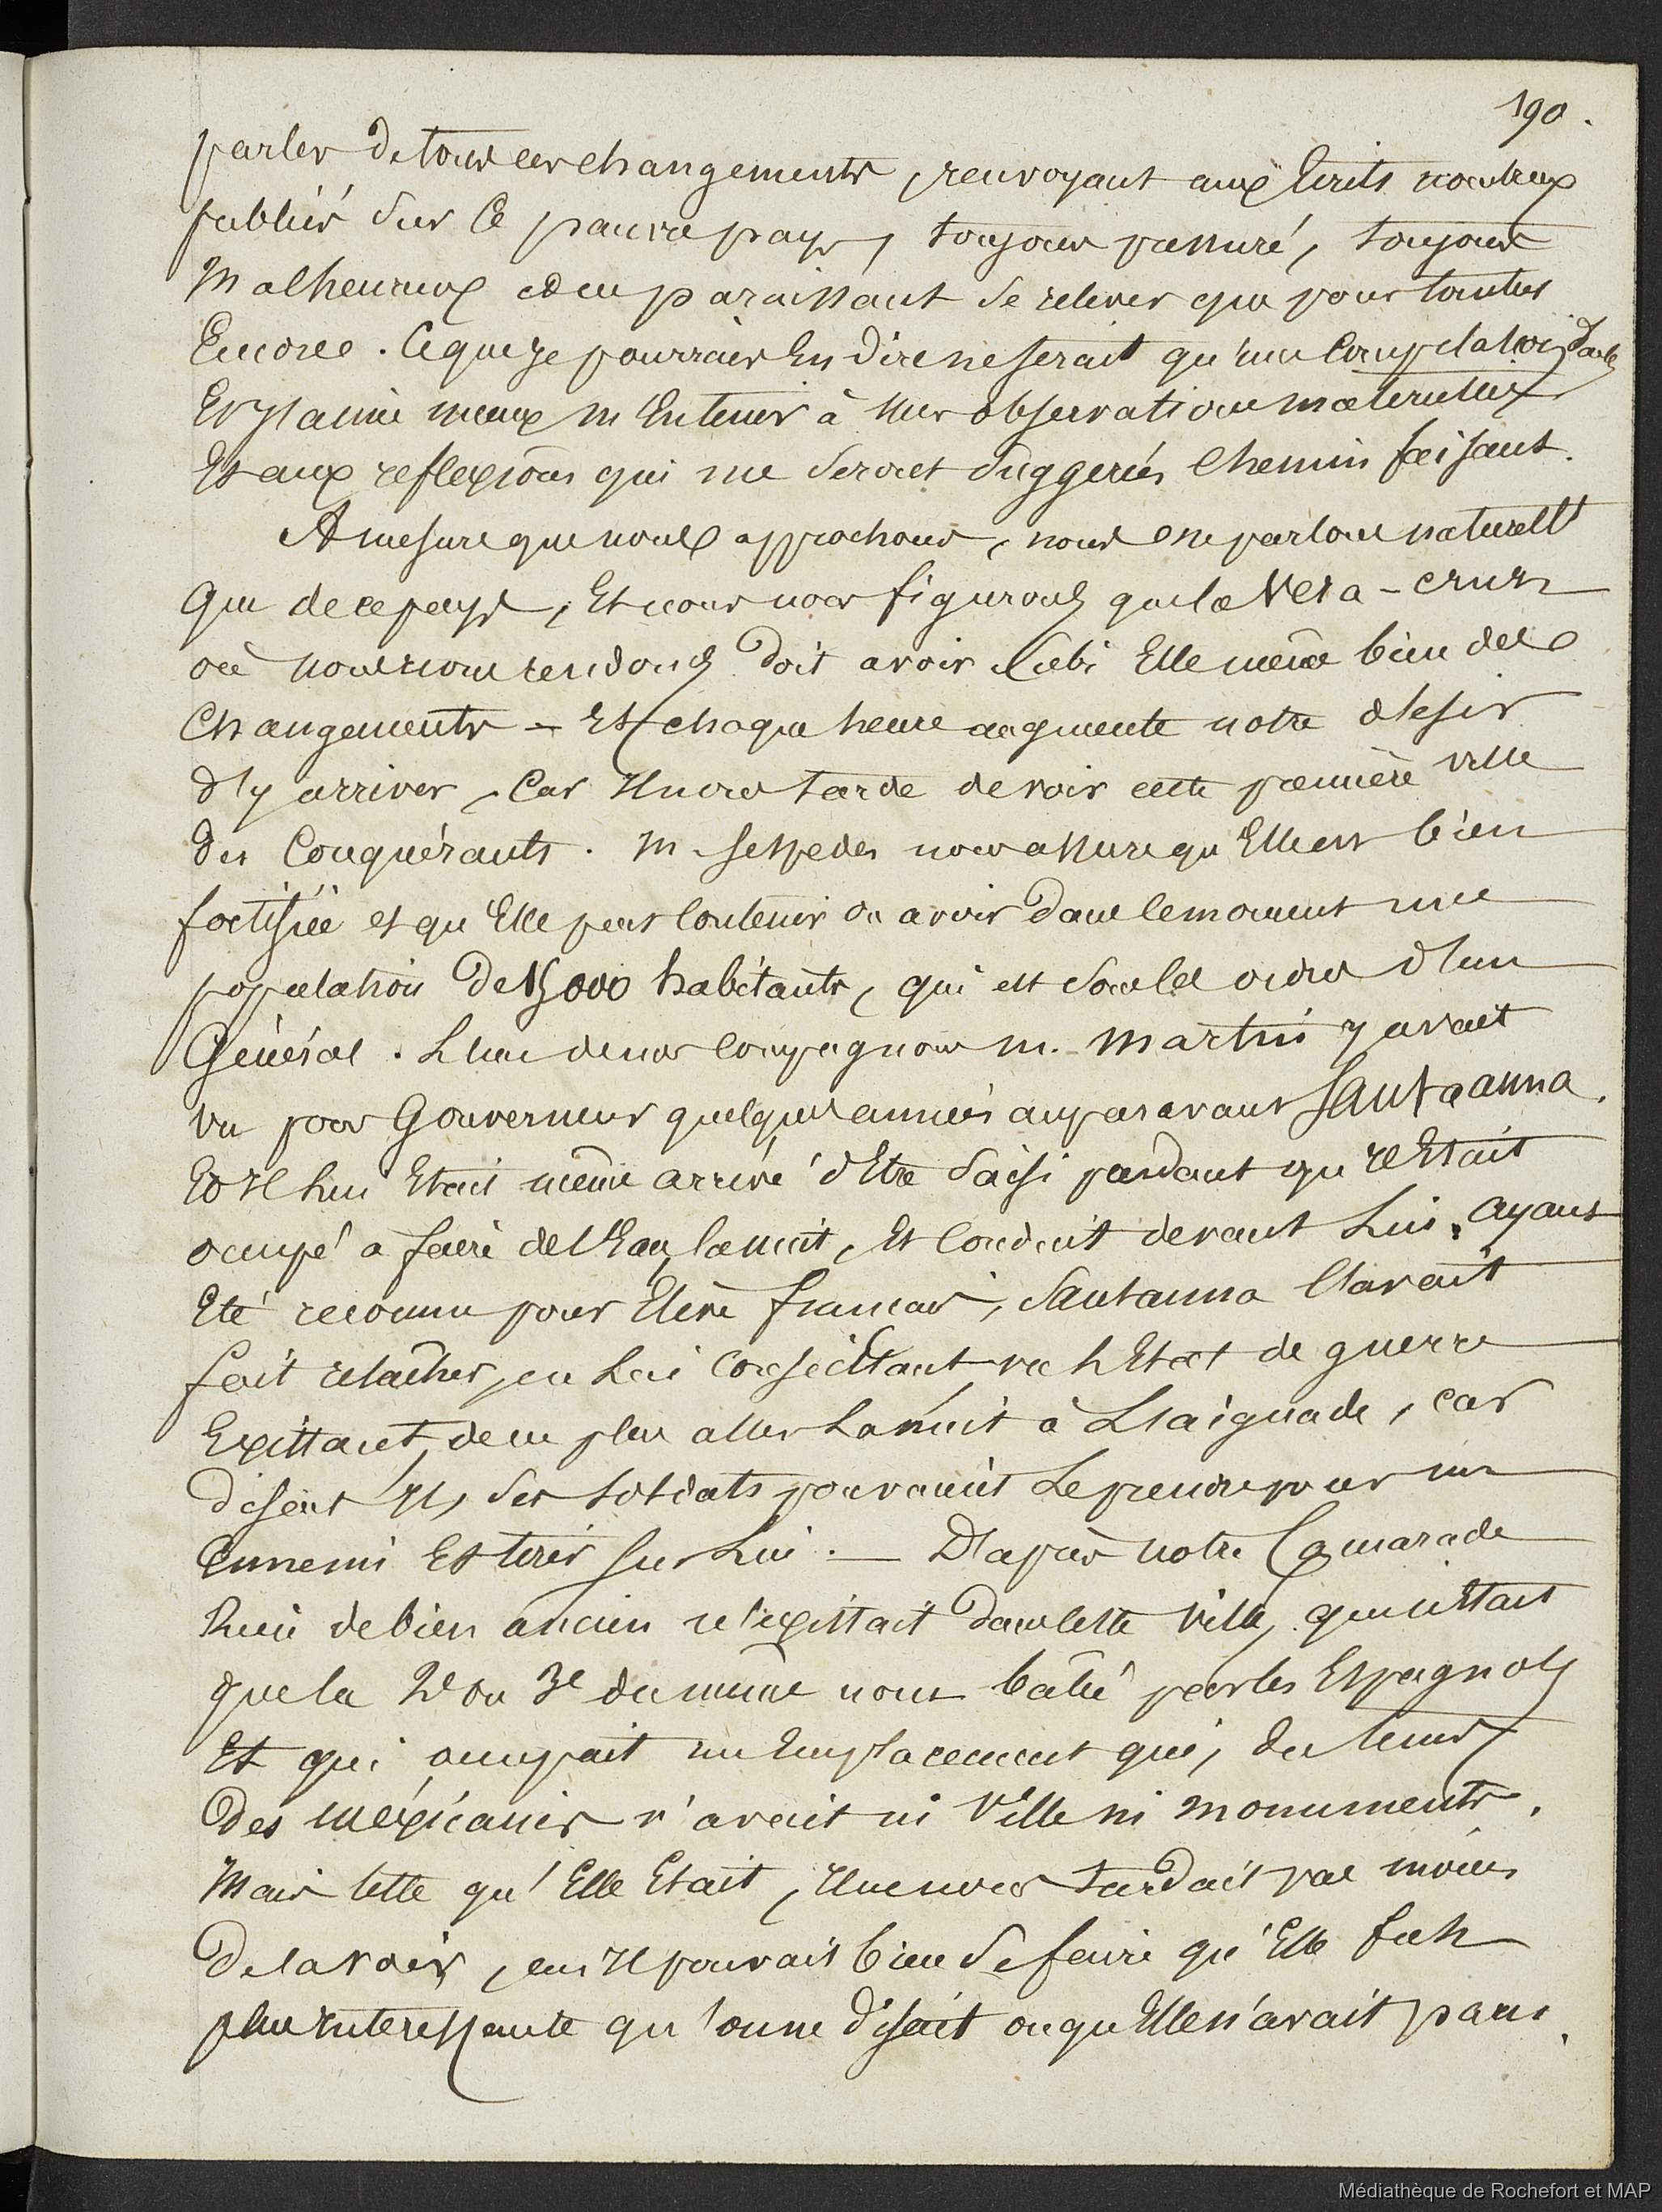 190.
parler de tous ces changements, renvoyant aux Ecrits nombreux
publiés sur ce pauvre pays, toujours pressuré, toujours
Malheureux et ne paraissant se relever que pour tomber
Encore. Ce que je pourrais En dire ne serait qu'une Compilation,
Et j'aime mieux m'En tenir à mes observations materielles
Et aux reflexions qui me seront suggerées Chemin faisant.
A mesure que nous approchons, nous ne parlons naturellt
que de ce pays, Et nous nous figurons que la Vera-cruz
où nous nous rendons doit avoir subi Elle même bien des
Changements - Et chaque heure augmente notre desir
d'y arriver, Car Il nous tarde de voir cette première ville
des Conquérants. M. Sespedes nous assure qu'Elle est bien
fortifiée et qu'Elle peut Contenir ou avoir dans le moment une
population de 15000 habitants, qui est sous les ordres d'un
Général. L'un de nos Compagnons M. Martin y avait
vu pour Gouverneur quelques années auparavant Santa anna.
Et Il lui Etait même arrivé d'Etre saisi pendant qu'Il Etait
occupé a faire de l'Eau, la nuit, Et Conduit devant Lui. Ayant
Eté reconnu pour Etre francais, Santanna l'avait
fait relacher, en Lui Conseillant, vu l'Etat de guerre
Existant, de ne plus aller La nuit à L'aiguade, car
disait Il, ses soldats pouvaient Le prendre pour un
Ennemi Et tirer sur Lui. — D'après notre Camarade
Rien de bien ancien n'existait dans Cette Ville, qui n'Etait
que la 2e ou 3e du même nom batie par les Espagnols
Et qui occupait un Emplacement qui, du temps
des méxicains n'avait ni Ville ni monuments.
Mais telle qu'Elle Etait, Il ne nous tardait pas moins
de la voir, car Il pouvait bien se faire qu'Elle fut
plus interessante qu'on ne disait ou qu'Elle n'avait paru.
Médiathèque de Rochefort et MAP